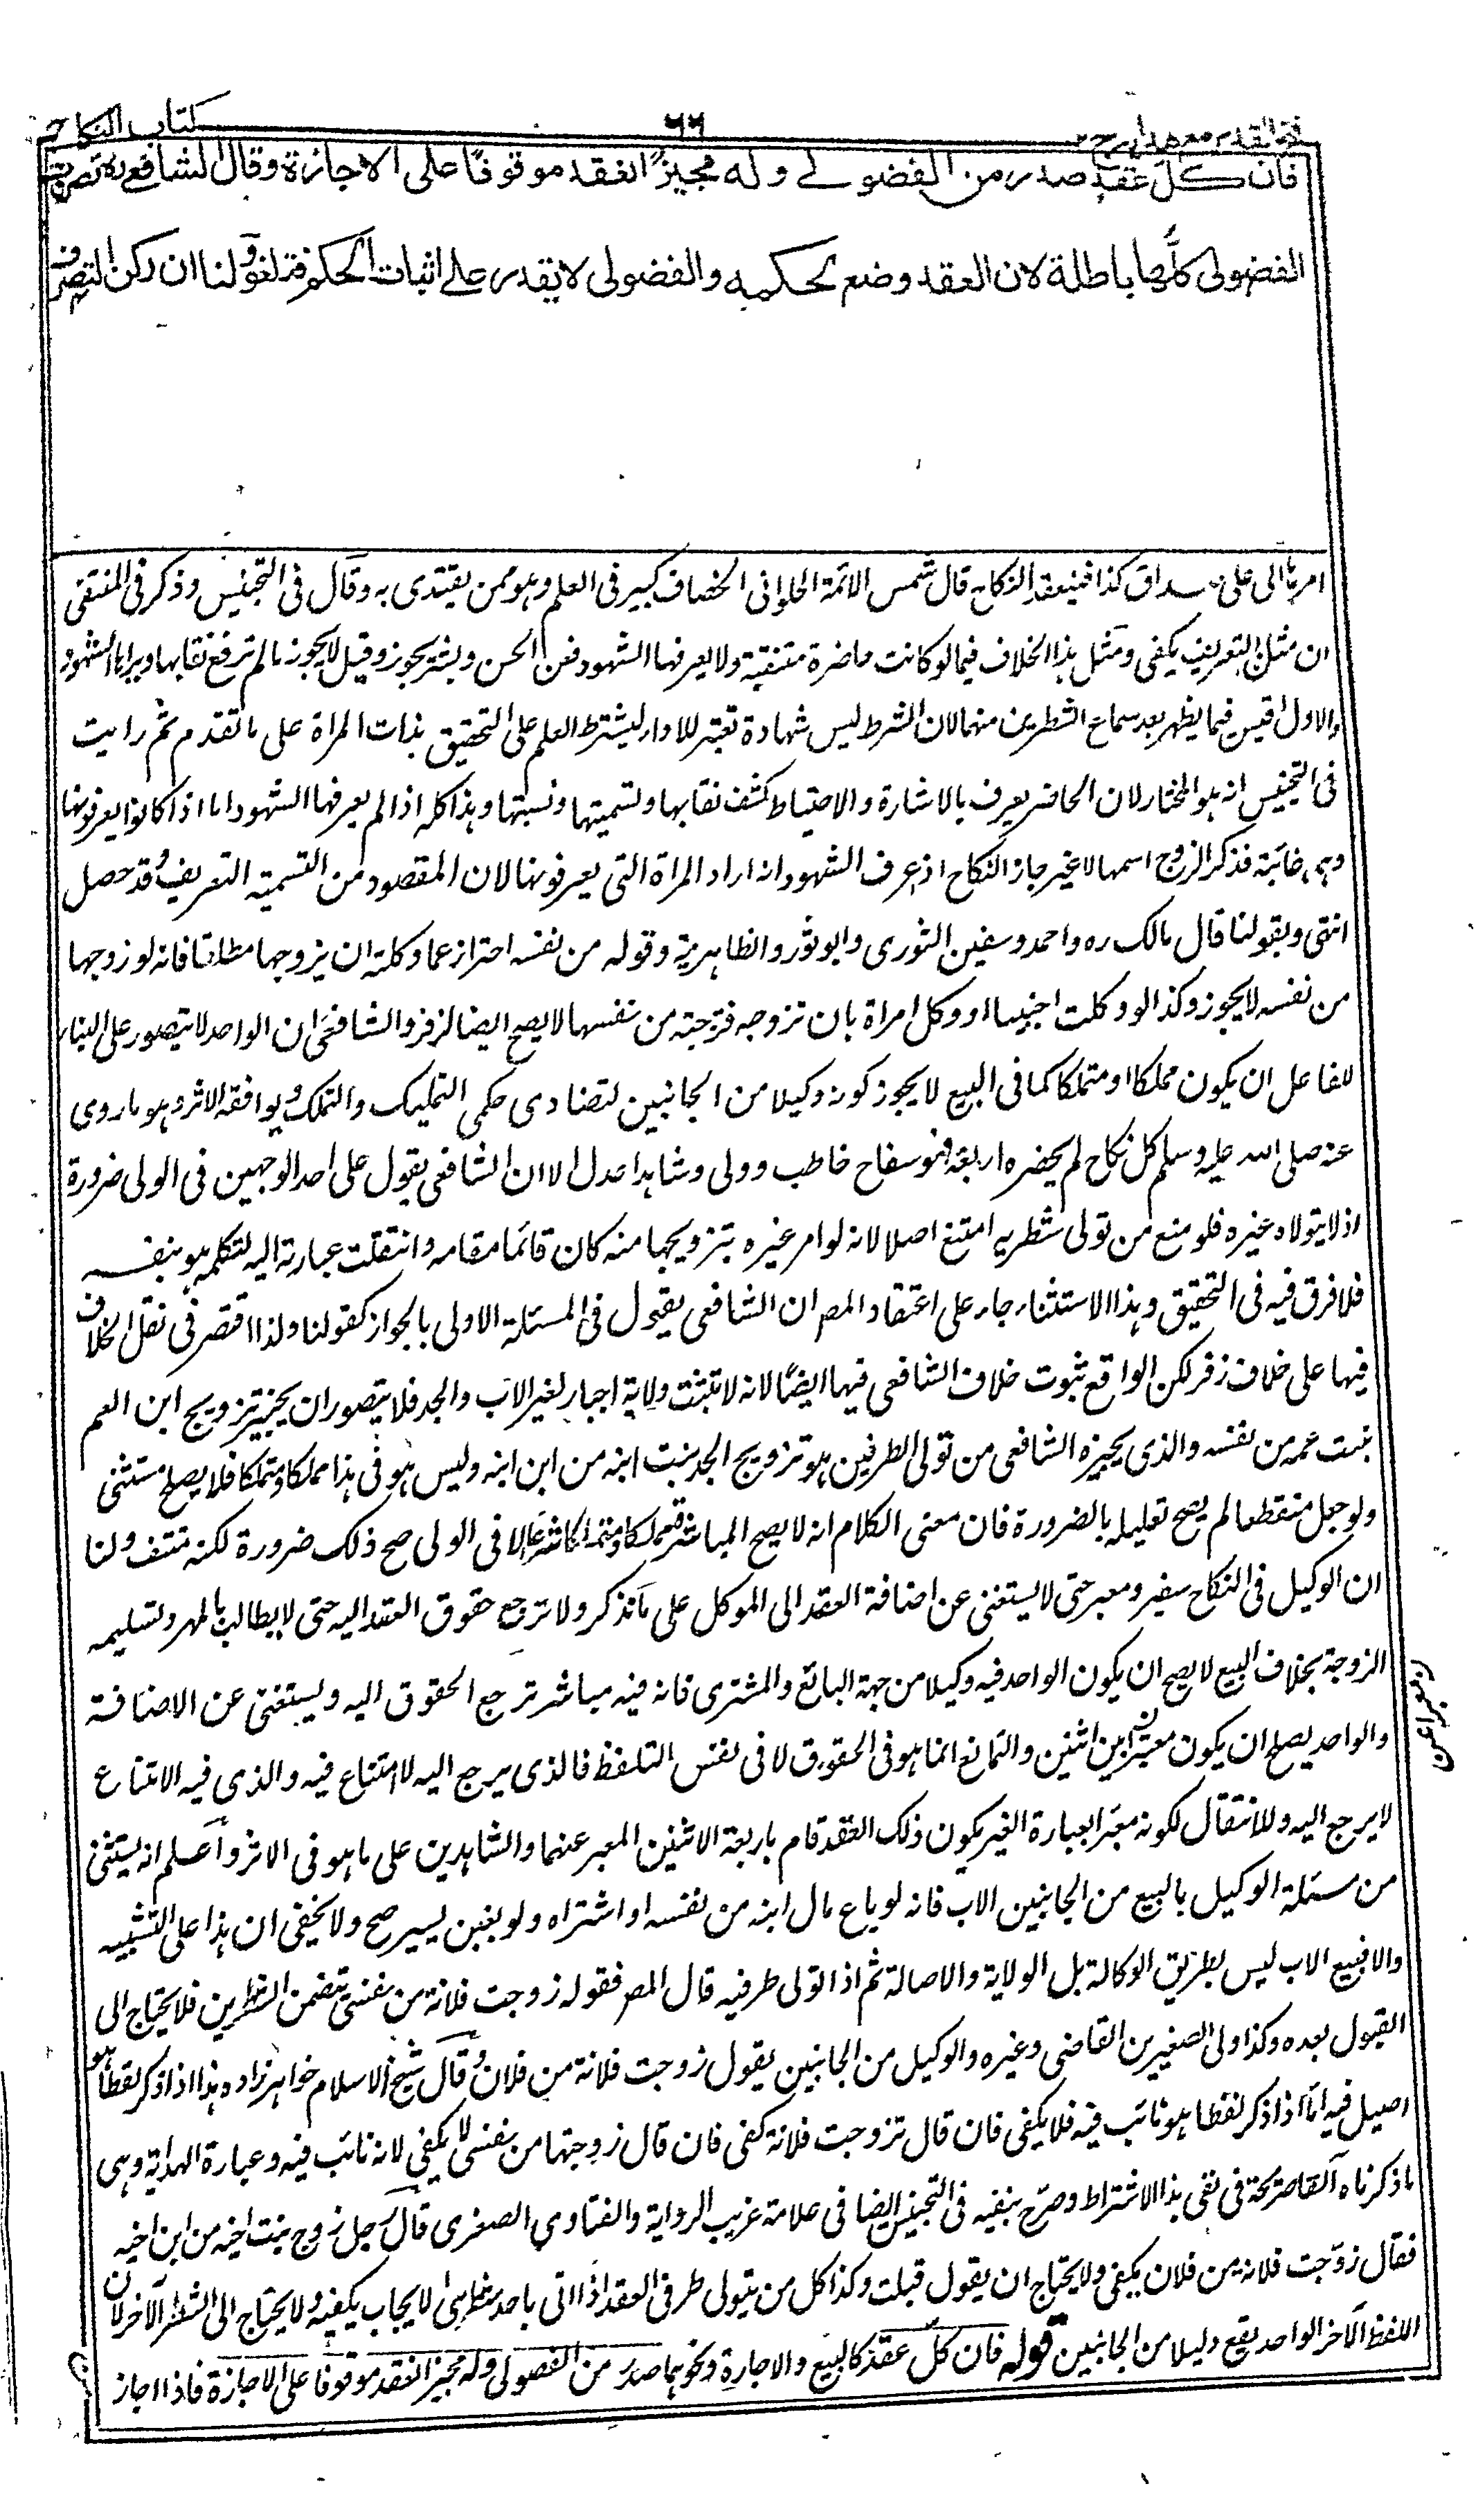 كتاب النكاح
٦٦
فتح القدير مع هداية ج ٢
فان كل عقد صدر من الفضولي وله مجيز انعقد موقوفا على الاجازة وقال الشافعي ره تصرفات
الفضولي كلها باطلة لان العقد وضع لحكمه والفضولي لا يقدر على اثبات الحكم فتلغو ولنا ان ركن التصرف
امرها الى على صداق كذا فينعقد النكاح قال شمس الائمة الحلوانى الخصاف كبير فى العلم وهو ممن يقتدى به وقال فى التجنيس وذكر فى المنتقى
ان مثل هذا التعريف يكفى ومثل هذا الخلاف فيما لو كانت حاضرة متنقبة ولا يعرفها الشهود فعن الحسن وبشر يجوز وقيل لا يجوز ما لم ترفع نقابها ويراها الشهود
والاول اقيس فيما يظهر بعد سماع الشطرين منهما لان الشرط ليس شهادة تعتبر للاداء ليشترط العلم على التحقيق بذات المراة على ما تقدم ثم رايت
فى التجنيس انه هو المختار لان الحاضر يعرف بالاشارة والاحتياط كشف نقابها وتسميتها ونسبتها وهذا كله اذا لم يعرفها الشهود اما اذا كانوا يعرفونها
وهى غائبة فذكر الزوج اسمها لا غير جاز النكاح اذا عرف الشهود انه اراد المراة التى يعرفونها لان المقصود من التسمية التعريف وقد حصل
انتهى وبقولنا قال مالك ره واحمد وسفين الثورى وابو ثور والظاهرية وقوله من نفسه احتراز عما وكلته ان يزوجها مطلقا فانه لو زوجها
من نفسه لا يجوز وكذا لو وكلت اجنبيا او وكل امراة بان تزوجه فزوجته من نفسها لا يصح ايضا لزفر والشافعى ان الواحد لا يتصور على البناء
للفاعل ان يكون مملكا ومتملكا كما فى البيع لا يجوز كونه وكيلا من الجانبين لتضادى حكمى التمليك والتملك ويوافقه الاثر وهو ما روى
عنه صلى الله عليه وسلم كل نكاح لم يحضره اربعة فهو سفاح خاطب وولى وشاهدا عدل الا ان الشافعى يقول على احد الوجهين فى الولى ضرورة
اذ لا يتولاه غيره فلو منع من تولى شطريه امتنع اصلا لانه لو امر غيره بتزويجها منه كان قائما مقامه وانتقلت عبارته اليه لتكلمه هو بنفسه
فلا فرق فيه فى التحقيق وهذا الاستثناء جار على اعتقاد المصر ان الشافعى يقول فى المسئلة الاولى بالجواز كقولنا ولذا اقتصر فى نقل الخلاف
فيها على خلاف زفر لكن الواقع ثبوت خلاف الشافعى فيها ايضا لانه لا تثبت ولاية اجبار لغير الاب والجد فلا يتصور ان يجيز تزويج ابن العم
بنت عمه من نفسه والذى يجيزه الشافعى من تولى الطرفين هو تزويج الجد بنت ابنه من ابن ابنه وليس هو فى هذا مملكا ومتملكا فلا يصلح مستثنى
ولو جعل منقطعا لم يصح تعليله بالضرورة فان معنى الكلام انه لا يصح المباشر مملكا ومتملكا شرعا الا فى الولى صح ذلك ضرورة لكنه منتف ولنا
ان الوكيل فى النكاح سفير ومعبر حتى لا يستغنى عن اضافة العقد الى الموكل على ما نذكر ولا ترجع حقوق العقد اليه حتى لا يطالب بالمهر وتسليم
الزوجة بخلاف البيع لا يصح ان يكون الواحد فيه وكيلا من جهة البائع والمشترى فانه فيه مباشر ترجع الحقوق اليه ويستغنى عن الاضافة
والواحد يصلح ان يكون معبرا بين اثنين والتمانع انما هو فى الحقوق لا فى نفس التلفظ فالذى يرجع اليه لا امتناع فيه والذى فيه الامتناع
لا يرجع اليه وللانتقال لكونه معبرا بعبارة الغير يكون ذلك العقد قام باربعة الاثنين المعبر عنهما والشاهدين على ما هو فى الاثر واعلم انه يستثنى
من مسئلة الوكيل بالبيع من الجانبين الاب فانه لو باع مال ابنه من نفسه او اشتراه ولو بغبن يسير صح ولا يخفى ان هذا على التشبيه
والا فبيع الاب ليس بطريق الوكالة بل الولاية والاصالة ثم اذا تولى طرفيه قال المصر فقوله زوجت فلانة من نفسى يتضمن الشطرين فلا يحتاج الى
القبول بعده وكذا ولى الصغيرين القاضى وغيره والوكيل من الجانبين يقول زوجت فلانة من فلان وقال شيخ الاسلام خواهر زاده هذا اذا ذكر لفظا هو
اصيل فيه اما اذا ذكر لفظا هو نائب فيه فلا يكفى فان قال تزوجت فلانة كفى فان قال زوجتها من نفسى لا يكفى لانه نائب فيه وعبارة الهداية وهى
ما ذكرناه آنفا صريحة فى نفى هذا الاشتراط وصرح بنفيه فى التجنيس ايضا فى علامة غريب الرواية والفتاوى الصغرى قال رجل زوج بنت اخيه من ابن اخيه
فقال زوجت فلانة من فلان يكفى ولا يحتاج ان يقول قبلت وكذا كل من يتولى طرفى العقد اذا اتى باحد شطرى الايجاب يكفيه ولا يحتاج الى الشطر الآخر لان
اللفظ الآخر الواحد يقع دليلا من الجانبين قوله فان كل عقد كالبيع والاجارة ونحوهما صدر من الفضولى وله مجيز انعقد موقوفا على الاجازة فاذا اجاز